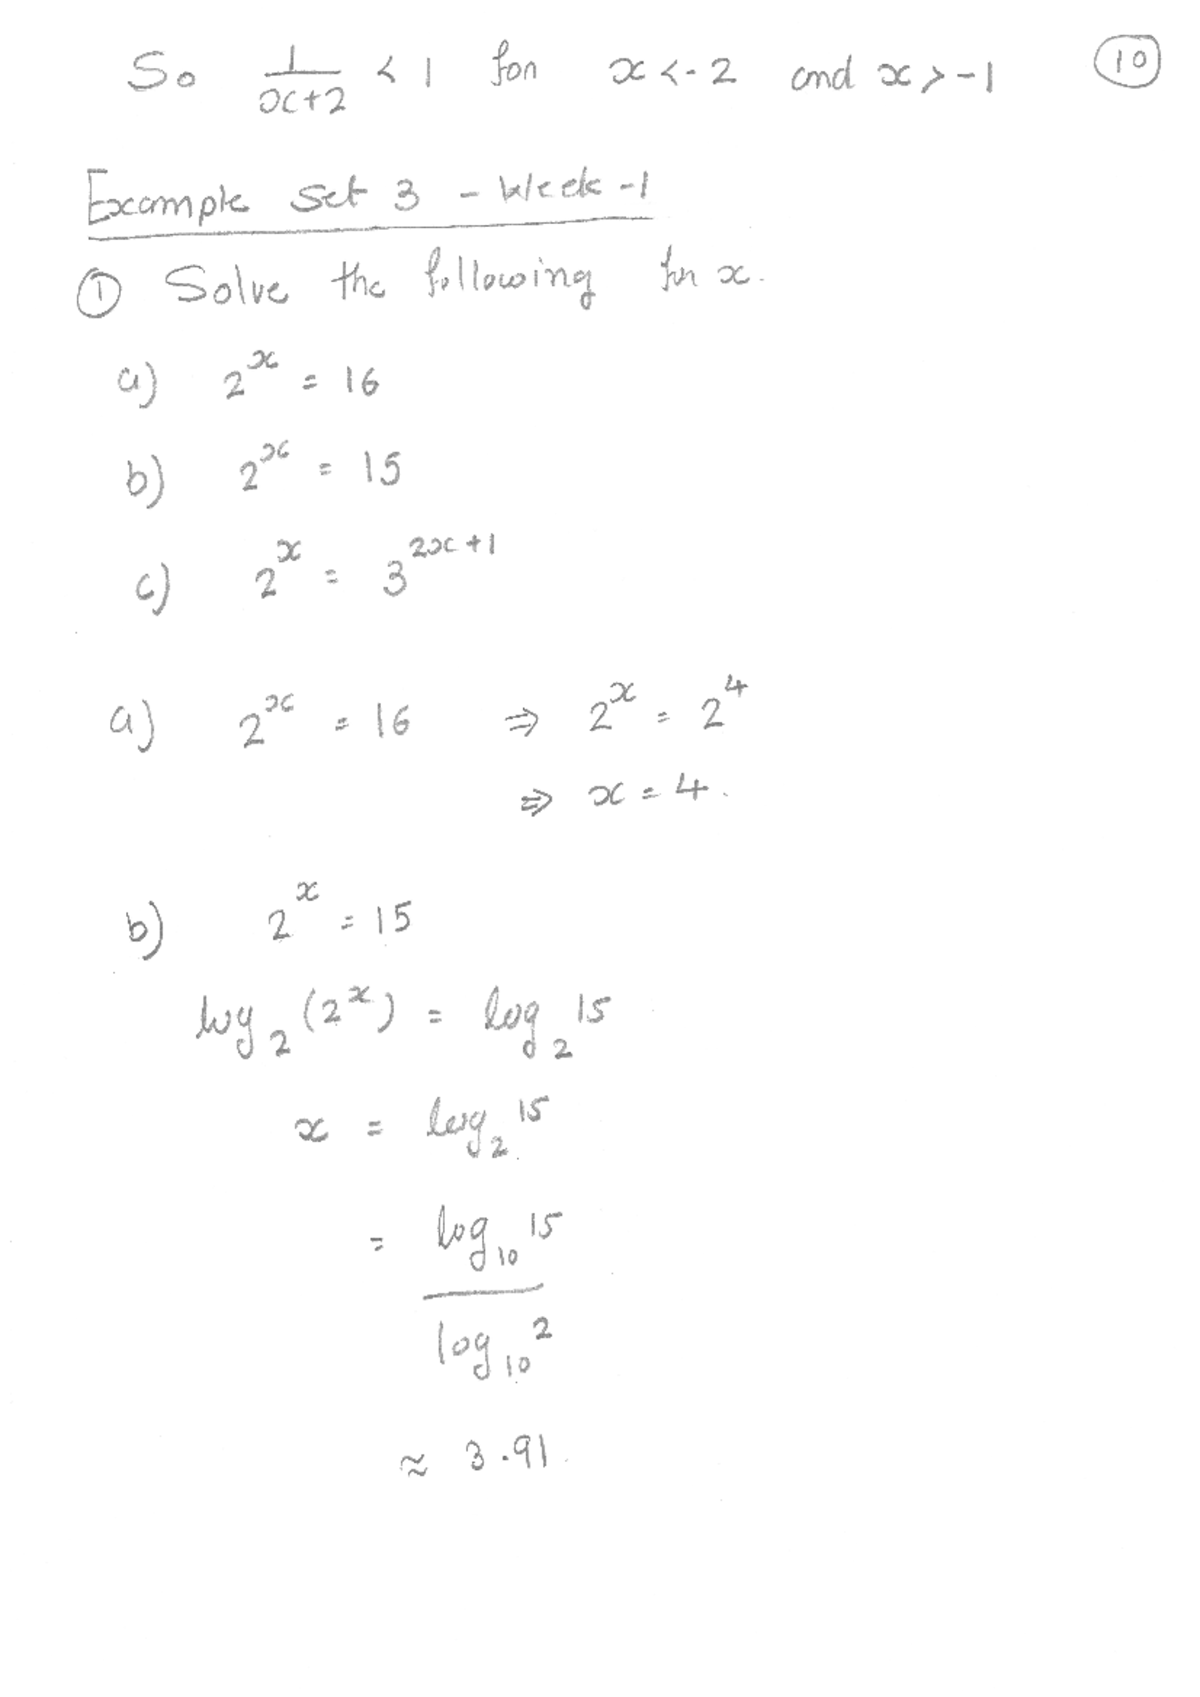 So 1/(x+2) < 1 for x < -2 and x > -1 (10)
Example Set 3 - Week -1
① Solve the following for x.
a) 2^x = 16
b) 2^x = 15
c) 2^x = 3^(2x+1)
a) 2^x = 16 ⇒ 2^x = 2^4
⇒ x = 4.
b) 2^x = 15
log_2 (2^x) = log_2 15
x = log_2 15
= log_10 15 / log_10 2
≈ 3.91.